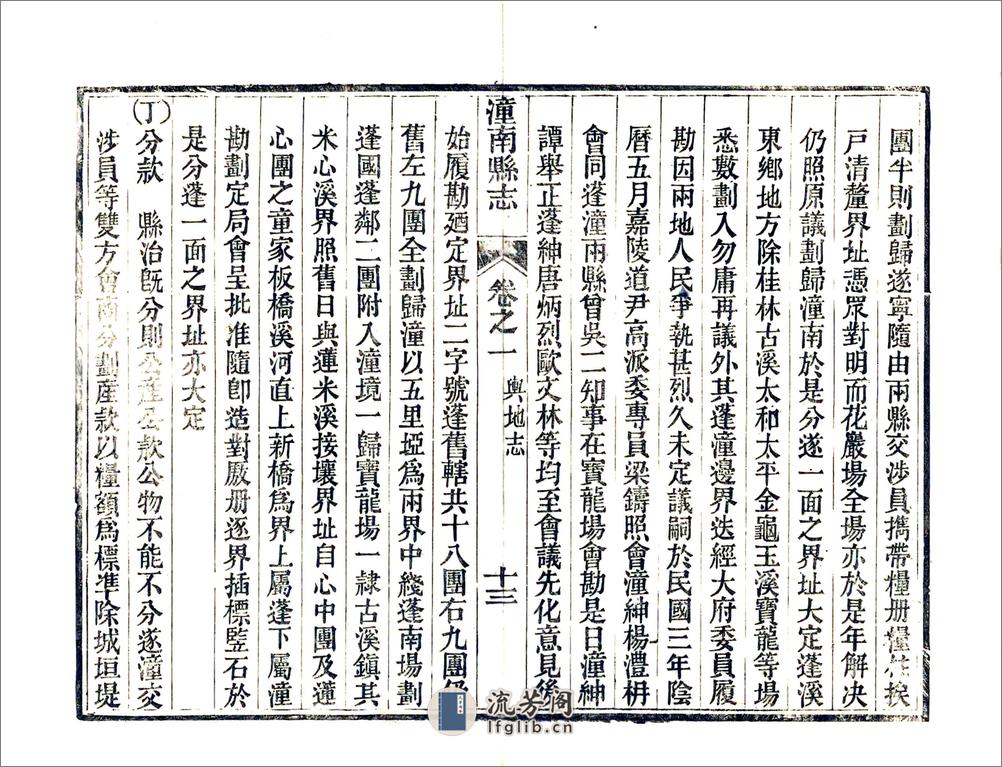 團半則劃歸遂寧隨由兩縣交涉員攜帶糧册糧 挨
戸清釐界址憑眾對明而花嚴場全場亦於是年解决
仍照原議劃歸潼南於是分遂一面之界址大定蓬溪
東鄉地方除桂林古溪太和太平金龜玉溪寶龍等場
悉數劃入勿庸再議外其蓬潼邊界迭經大府委員履
勘因兩地人民爭執甚烈久未定議嗣於民國三年陰
曆五月嘉陵道尹高派委專員梁鑄照會潼紳楊澧枬
會同蓬潼兩縣曾吳二知事在寶龍場會勘是日潼紳
譚舉正蓬紳唐炳烈歐文林等均至會議先化意見後
潼南縣志
卷之一
輿地志
十三
始履勘廼定界址二字號蓬舊轄共十八團右九團仍
舊左九團全劃歸潼以五里埡爲兩界中綫蓬南場劃
蓬國蓬鄰二團附入潼境一歸寶龍場一隷古溪鎮其
米心溪界照舊日與蓮米溪接壤界址自心中團及蓮
心團之童家板橋溪河直上新橋爲界上屬蓬下屬潼
勘劃定局會呈批准隨卽造對厫册逐界插標竪石於
是分蓬一面之界址亦大定
(丁)分款 縣治旣分則公産公款公物不能不分遂潼交
涉員等雙方會商分劃産款以糧額爲標準除城垣堤
流芳閣
lfglib.cn